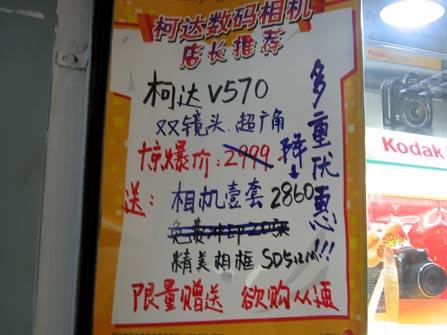 柯达数码相机
店长推荐
柯达 V570
双镜头.超广角
惊爆价:2999 降↓ 2860
送:相机壹套
精美相框 SD512M
限量赠送 欲购从速
多重优惠!!!
Kodak